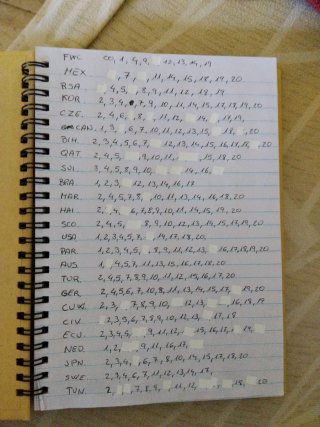 FWC 00, 1, 4, 9, 12, 13, 14, 19
MEX , 7, 11, 14, 15, 18, 19, 20
RSA 4, 5, 8, 11, 12, 18, 19
KOR 2, 3, 4, 7, 9, 10, 11, 14, 15, 17, 18, 19, 20
CZE. 2, 4, 6, 8, 11, 12, 14, 17, 19,
CAN. 1, 3, 6, 7, 10, 11, 12, 13, 15, 18, 20
BIH. 2, 3, 4, 5, 6, 7, 12, 13, 14, 15, 16, 17, 20
QAT 2, 4, 5, 9, 10, 11, 15, 18, 20
SUI 3, 4, 5, 8, 9, 10, 14, 16,
BRA 1, 2, 3, 12, 13, 14, 16, 17
MAR. 2, 4, 5, 7, 8, 10, 11, 13, 14, 16, 18, 20
HAI. 2, 4, 6, 7, 8, 9, 10, 11, 14, 15, 19, 20
SCO 2, 4, 5, 8, 9, 10, 12, 13, 14, 15, 17, 19, 20
USA 1, 2, 3, 4, 5, 7, 14, 17, 18, 20.
PAR. 1, 2, 3, 4, 5, 8, 9, 11, 12, 13, 16, 17, 18, 19, 20
AUS. 1, 4, 5, 7, 11, 13, 15, 16, 17, 18, 20
TUR. 2, 4, 5, 7, 8, 9, 10, 11, 12, 15, 16, 17, 20
GER 2, 4, 5, 6, 7, 10, 8, 11, 13, 14, 15, 17, 19, 20
CUW. 2, 3, 7, 8, 9, 10, 12, 13, 16, 18, 17
CIV. 2, 3, 5, 6, 7, 8, 9, 10, 12, 13, 17, 18
ECU. 2, 3, 4, 5, 9, 11, 12, 15, 16, 18, 14
NED. 1, 2, 9, 11, 16, 17,
JPN. 2, 3, 4, 6, 7, 8, 10, 14, 15, 17, 18, 20
SWE 2, 3, 4, 6, 7, 8, 11, 12, 13, 14, 17,
TUN. 2, 7, 8, 9, 11, 12, 18, 20